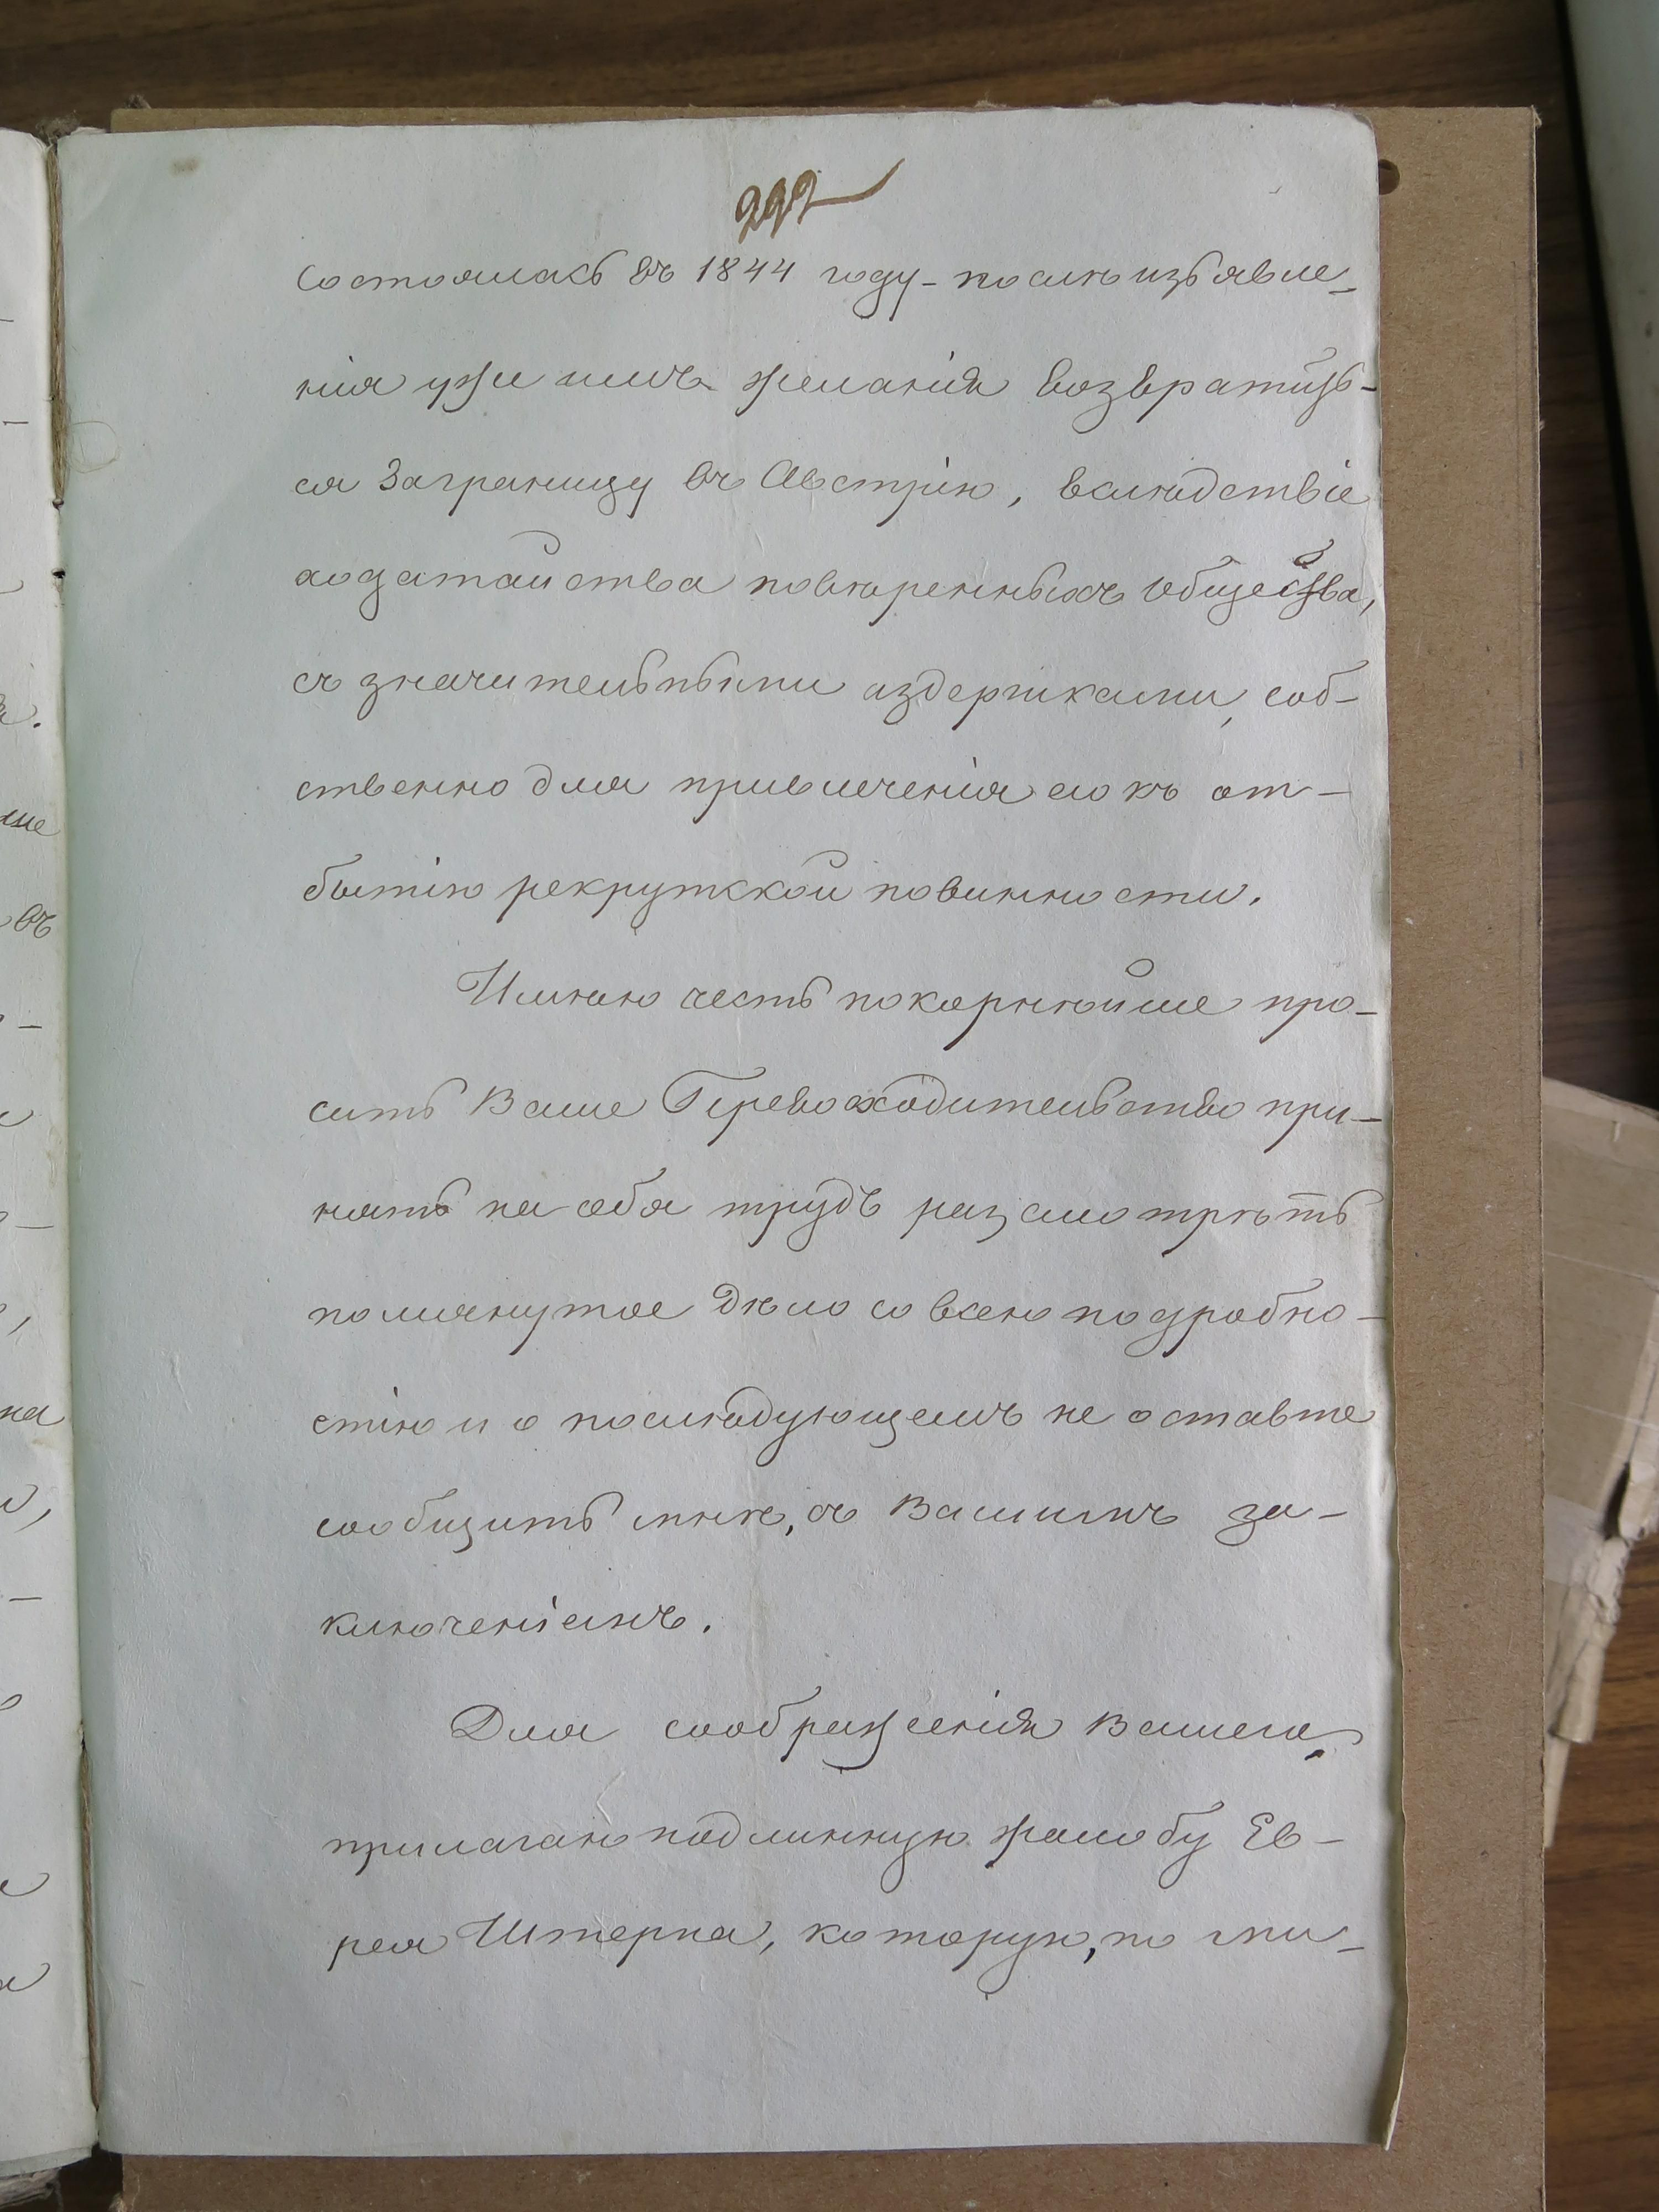 292
состоялась въ 1844 году – послѣ изъявле-
нія уже имъ желанія возвратить-
ся Заграницу въ Австрію, вслѣдствіе
ходатайства повѣренныхъ Общества,
съ значительными издержками, соб-
ственно для привлеченія его къ от-
бытію рекрутской повинности.
Имѣю честь покорнѣйше про-
сить Ваше Превосходительство при-
нять на себя трудъ разсмотрѣть
помянутое дѣло со всею подробно-
стію и о послѣдующемъ не оставте
сообщить мнѣ, съ Вашимъ за-
ключеніемъ.
Для соображенія Вашего
прилагаю подлинную жалобу Ев-
рея Штерна, которую, по ми-